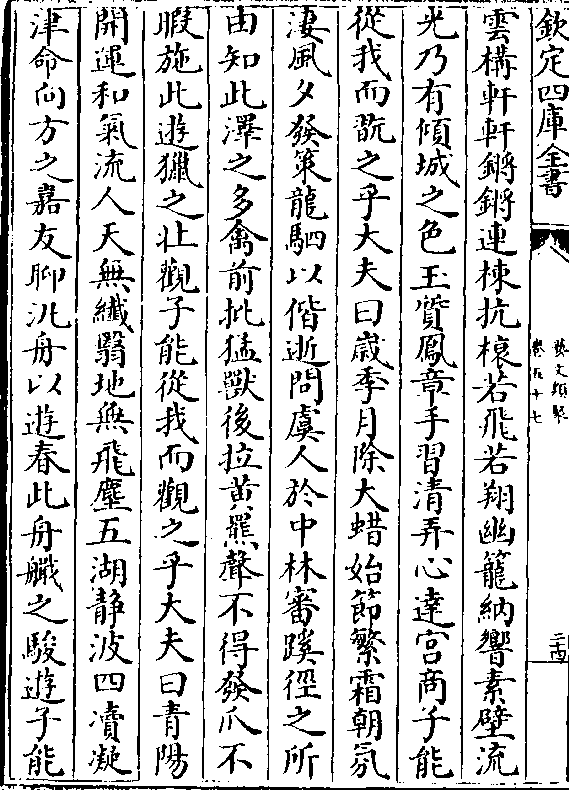 欽定四庫全書
藝文類聚
卷五十七
二十四
雲構軒軒鏘鏘連棟抗榱若飛若翔幽籠納響素壁流
光乃有傾城之色玉質鳳章手習清弄心達宮商子能
從我而翫之乎大夫曰歲季月除大蜡始節繁霜朝氛
淒風夕發策龍駟以偕逝問虞人於中林審蹊徑之所
由知此澤之多禽前批猛獸後拉黄羆聲不得發爪不
暇施此遊獵之壯觀子能從我而觀之乎大夫曰青陽
開運和氣流人天無纖翳地無飛塵五湖静波四瀆凝
津命向方之嘉友聊汎舟以遊春此舟艥之駿遊子能